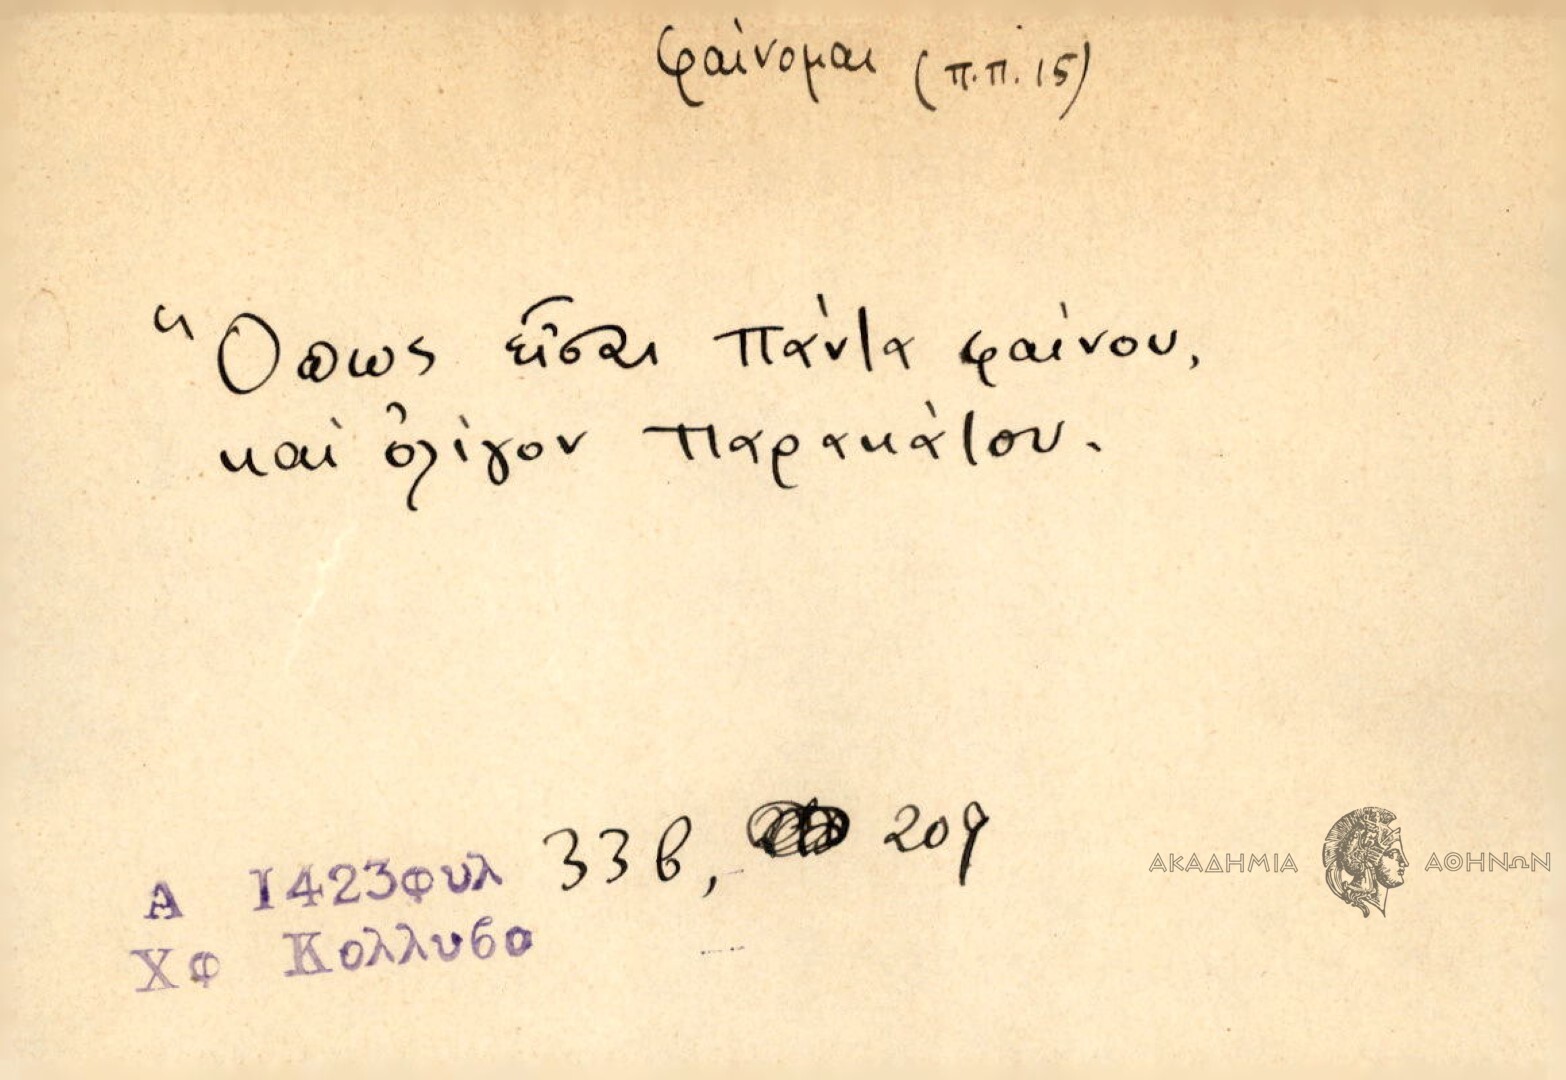 φαίνομαι (π.π. 15)
Ὅπως εἶσαι πάντα φαίνου,
καὶ ὀλίγον παρακάτου.
Α 1423φυλ 33β, 209
Χφ Κολλυβα
ΑΚΑΔΗΜΙΑ ΑΘΗΝΩΝ